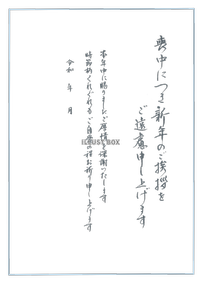 喪中につき新年のご挨拶を
ご遠慮申し上げます
本年中に賜りましたご厚情を感謝いたします
時節柄くれぐれもご自愛の程お祈り申し上げます
令和　年　月
ILLUST BOX